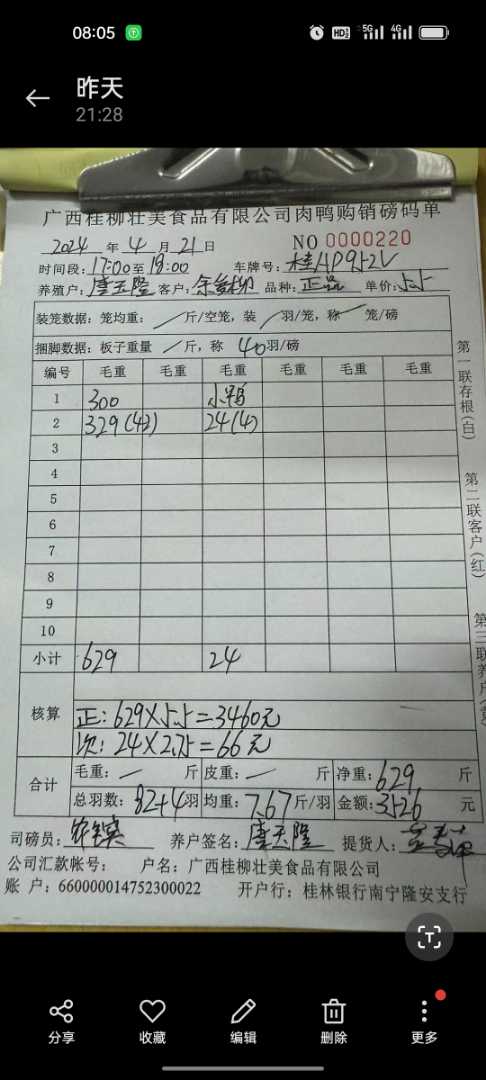 08:05 HD 5G 4G
昨天
21:28
广西桂柳壮美食品有限公司肉鸭购销磅码单
2024 年 4 月 21 日 NO 0000220
时间段: 17:00 至 18:00 车牌号:
养殖户: 客户: 品种: 正品 单价: 5.5
装笼数据: 笼均重: 斤/空笼, 装 羽/笼, 称 笼/磅
捆脚数据: 板子重量 斤, 称 40 羽/磅
编号 毛重 毛重 毛重 毛重 毛重 毛重
1 300 小鸭
2 329(42) 24(4)
3
4
5
6
7
8
9
10
小计 629 24
核算
正: 629×5.5=3460元
次: 24×2.75=66元
合计 毛重: 斤 皮重: 斤 净重: 629 斤
总羽数: 82+4 羽 均重: 7.67 斤/羽 金额: 3526 元
司磅员: 养户签名: 提货人:
公司汇款帐号: 户名: 广西桂柳壮美食品有限公司
账户: 660000014752300022 开户行: 桂林银行南宁隆安支行
第一联存根(白)
第二联客户(红)
第三联养户
分享 收藏 编辑 删除 更多